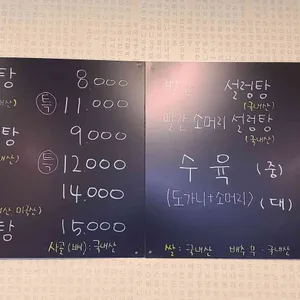 탕 8000
(특) 11.000
탕 9.000
(특) 12.000
14.000
탕 15.000
사골(뼈): 국내산
빨간 설렁탕
(국내산)
빨간 소머리 설렁탕
(국내산)
수육 (중)
(도가니+소머리) (대)
쌀: 국내산 배추.무: 국내산